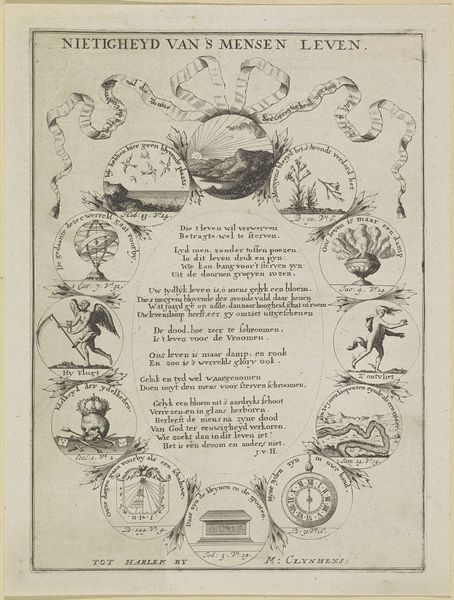 NIETIGHEYD VAN 'S MENSEN LEVEN.
zal de Zonne der Geregtigheid opgaan
Wy hebben hier geen blyvende plaats
Heb. 13. V. 14.
's Morgens bloeyt het, 's avonds verdord het
P. 90. V. 6.
De gedaante dezer werreld gaat voorby.
1 Cor. 7. V. 31.
Ons leven is maar een damp
Jac. 4. V. 14.
Hy Vlugt
Z' ontvliet
Ydelheyd der ydelheden
Eccl. 1. V. 2.
2 Sam. 14. V. 14.
Onse dagen gaan voorby als een schaduwe
P. 144. V. 4.
Daar zyn de kleynen en de grooten
Job. 3. V. 19.
Myne tyden zyn in uwe hand
P. 31. V. 16.
Die t leven wil verwerven
Betragte wel te sterven.
Lyd men zonder tussen poozen
In dit leven druk en pyn:
Wie kan bang voor't sterven zyn
Uit de doornen groeyen rozen.
Uw tydlyk leven is, ô mens gelyk een bloem.
Die s morgens bloyende des avonds vald daar henen
Wat jaagd gy op aarde, dan naar hoogheid, schat of roem
Uw levendamp heeft, eer gy omziet uitgeschenen
De dood, hoe zeer te schroomen,
Is't leven voor de Vroomen.
Ons leven is maar damp, en rook
En zoo is's werrelds glory ook.
Gelyk en tyd wel waargenomen
Doen noyt den mens voor sterven schroomen,
Gelyk een bloem uit 's aardryks schoot
Verrezen en in glans herboren
Herleeft de mens na zyne dood
Van God ter eeuwigheyd verkoren.
Wie zoekt dan in dit leven iet!
Het is een droom en anders niet.
J. v. H.
TOT HARLEM BY M: CLYNHENS: